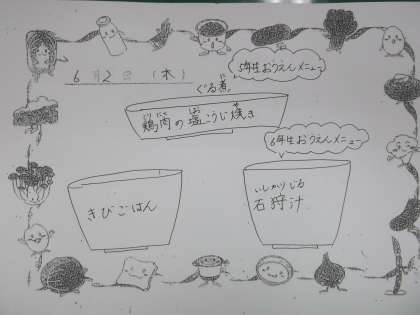 5年生おうえんメニュー
6月2日(木)
ぐる煮
鶏肉の塩こうじ焼き
6年生おうえんメニュー
きびごはん
いしかりじる
石狩汁